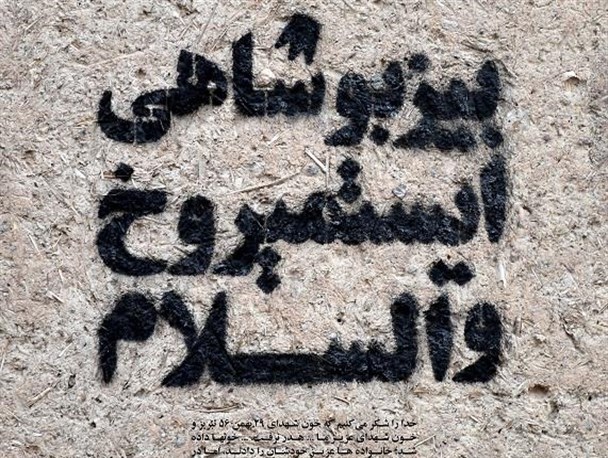 بیز بو شاهی
ایستمیروخ
والسلام
خدا را شکر می کنیم که خون شهدای ۲۹ بهمن ۵۶ تبریز و
خون شهدای عزیز ما ... هدر نرفت ... خونها داده
شد؛ خانواده ها عزیز خودشان را دادند، اما در